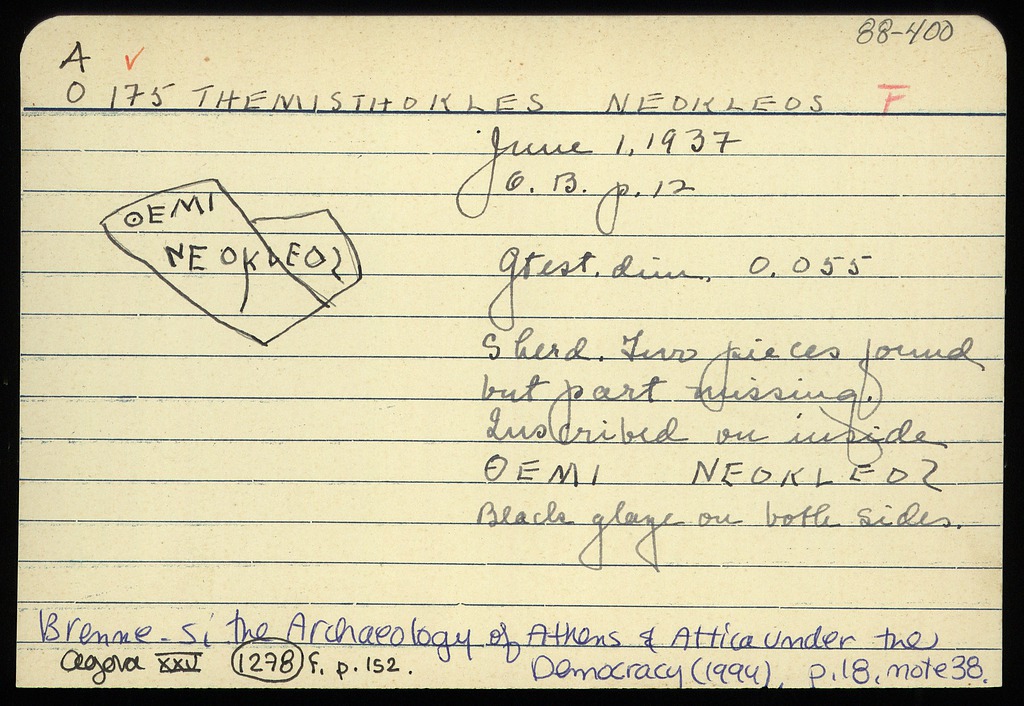 88-400
A ✓
O 175 THEMISTHOKLES NEOKLEOS F
June 1, 1937
O. B. p. 12
ΘEMI
NEOKLEOS
Gtest. dim. 0.055
Sherd. Two pieces found
but part missing.
Inscribed on inside
ΘEMI NEOKLEOS
Black glaze on both sides.
Brenne - Si the Archaeology of Athens & Attica under the
Agora XXV 1278 f. p. 152.
Democracy (1994), p. 18, note 38.